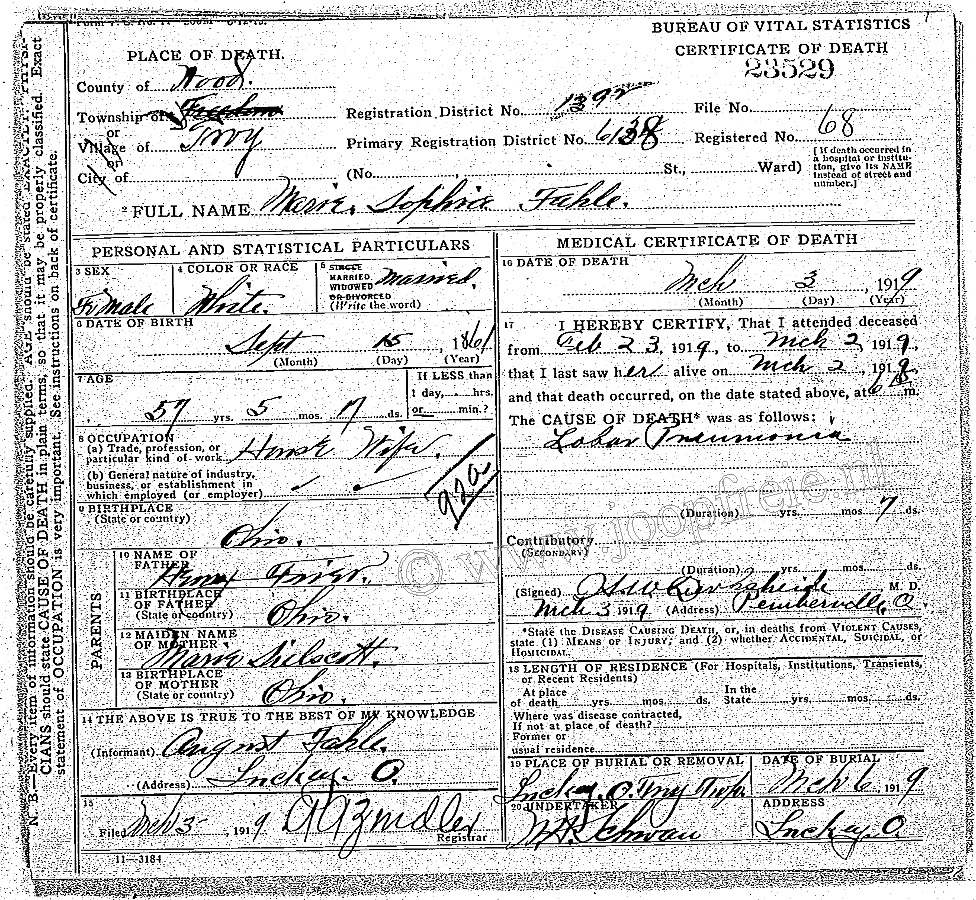 BUREAU OF VITAL STATISTICS
CERTIFICATE OF DEATH
23529
PLACE OF DEATH.
County of Wood.
Township of Freedom
or
Village of Troy
or
City of
Registration District No. 1392
File No.
Primary Registration District No. 6138
Registered No. 68
(No. St., Ward)
[If death occurred in
a hospital or institu-
tion, give its NAME
instead of street and
number.]
2 FULL NAME Marie Sophie Fahle.
PERSONAL AND STATISTICAL PARTICULARS
3 SEX
Female
4 COLOR OR RACE
White
5 SINGLE
MARRIED
WIDOWED
OR DIVORCED
(Write the word)
Married
6 DATE OF BIRTH
Sept 15, 1861
(Month) (Day) (Year)
7 AGE
57 yrs. 5 mos. 17 ds.
If LESS than
1 day, hrs.
or min.?
8 OCCUPATION
(a) Trade, profession, or
particular kind of work House Wife.
(b) General nature of industry,
business, or establishment in
which employed (or employer)
92a
9 BIRTHPLACE
(State or country)
Ohio.
PARENTS
10 NAME OF
FATHER
11 BIRTHPLACE
OF FATHER
(State or country) Ohio.
12 MAIDEN NAME
OF MOTHER
Marie
13 BIRTHPLACE
OF MOTHER
(State or country) Ohio.
14 THE ABOVE IS TRUE TO THE BEST OF MY KNOWLEDGE
(Informant) August Fahle.
(Address) Luckey. O.
15
Filed Mch 3-, 1919
Registrar
11—3184
MEDICAL CERTIFICATE OF DEATH
16 DATE OF DEATH
Mch 3, 1919
(Month) (Day) (Year)
17 I HEREBY CERTIFY, That I attended deceased
from Feb 23, 1919, to Mch 2, 1919,
that I last saw her alive on Mch 2, 1919
and that death occurred, on the date stated above, at m.
The CAUSE OF DEATH* was as follows:
Lobar Pneumonia
(Duration) yrs. mos. 7 ds.
Contributory
(SECONDARY)
(Duration) yrs. mos. ds.
(Signed) M. D.
Mch 3 1919 (Address) Pemberville, O.
*State the DISEASE CAUSING DEATH, or, in deaths from VIOLENT CAUSES,
state (1) MEANS OF INJURY; and (2) whether ACCIDENTAL, SUICIDAL, or
HOMICIDAL.
18 LENGTH OF RESIDENCE (For Hospitals, Institutions, Transients,
or Recent Residents)
At place
of death yrs. mos. ds.
In the
State yrs. mos. ds.
Where was disease contracted,
If not at place of death?
Former or
usual residence
19 PLACE OF BURIAL OR REMOVAL
Luckey, O. Troy Twp.
DATE OF BURIAL
Mch 6, 1919
20 UNDERTAKER
Schwan
ADDRESS
Luckey. O.
N. B.—Every item of information should be carefully supplied. AGE should be stated EXACTLY. PHYSI-
CIANS should state CAUSE OF DEATH in plain terms, so that it may be properly classified. Exact
statement of OCCUPATION is very important. See instructions on back of certificate.
© www.joopfreie.nl